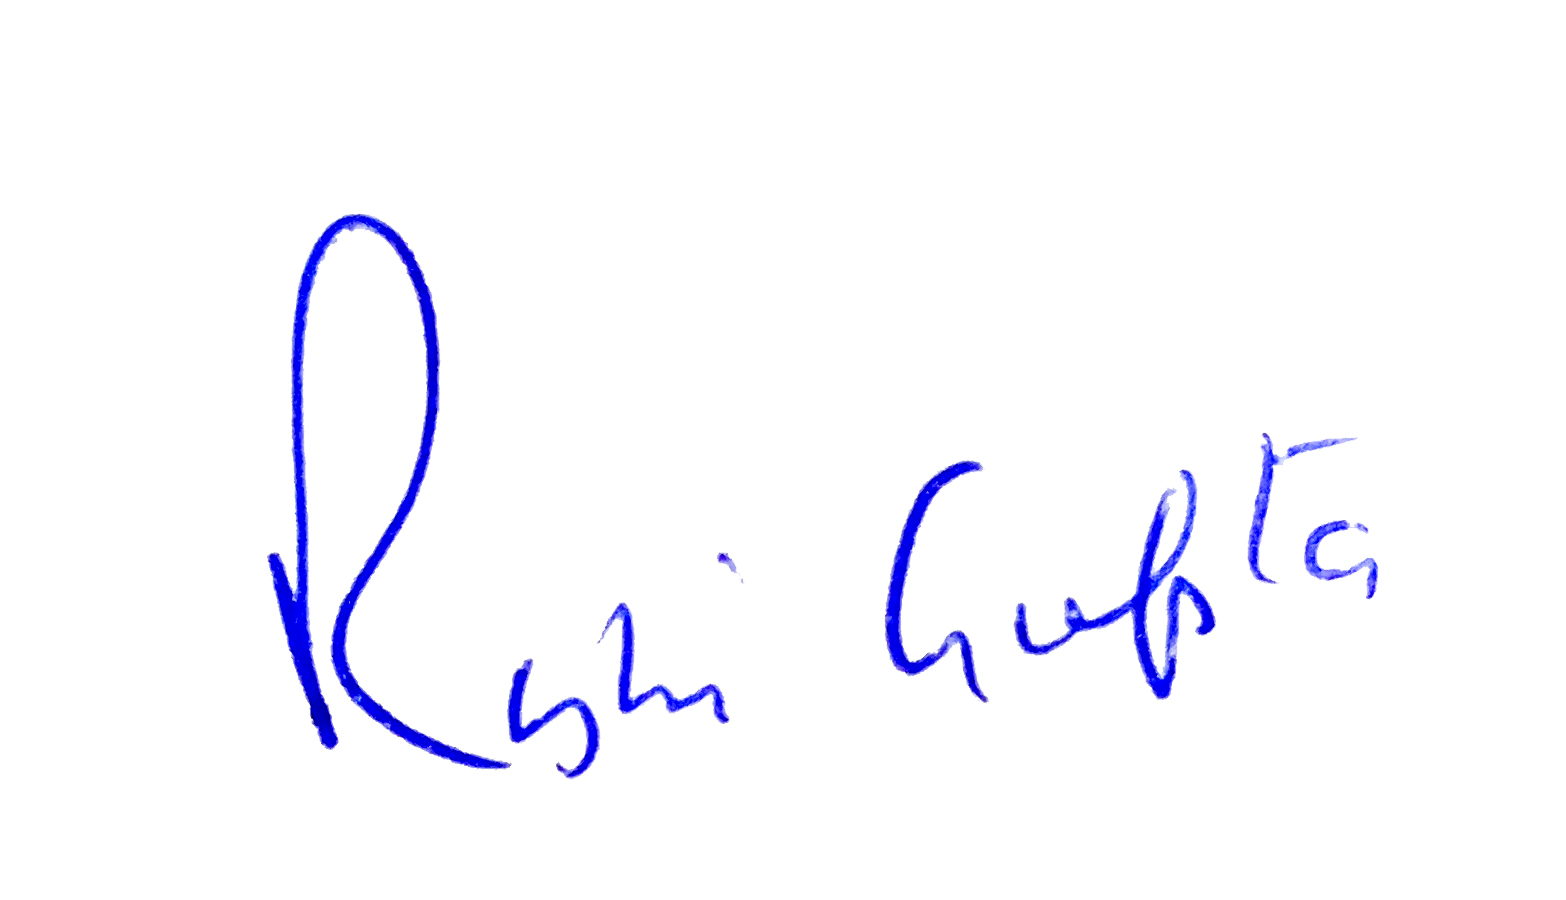 Rashi Gupta